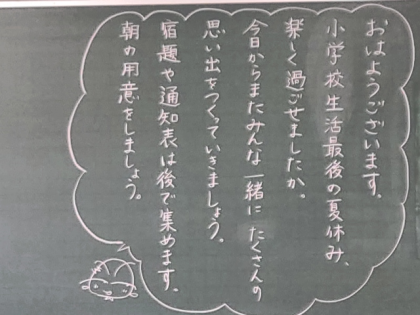 おはようございます。
小学校生活最後の夏休み、
楽しく過ごせましたか。
今日からまたみんな一緒に たくさんの
思い出をつくっていきましょう。
宿題や通知表は後で集めます。
朝の用意をしましょう。